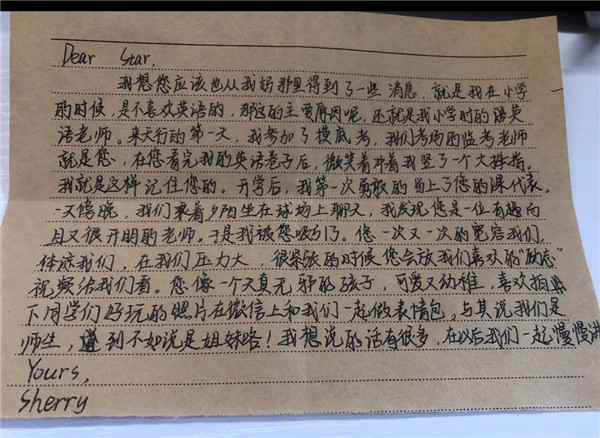 Dear Star,
我想您应该也从我妈那里得到了一些消息,就是我在小学
的时候,是不喜欢英语的,那这的主要原因呢,还就是我小学时的语英
语老师。来天行的第一天,我参加了摸底考,我们考场的监考老师
就是您,在您看完我的英语卷子后,微笑着冲着我竖了一个大拇指。
我就是这样记住您的。开学后,我第一次勇敢的当上了您的课代表,
一天傍晚,我们乘着夕阳坐在球场上聊天,我发现您是一位有趣而
且又很开明的老师。于是我被您吸引了。您一次又一次的宽容我们,
体谅我们,在我们压力大,很紧张的时候您会放我们喜欢的“励志”
视频给我们看。您像一个天真无邪的孩子,可爱又幼稚,喜欢拍
下同学们好玩的照片在微信上和我们一起做表情包,与其说我们是
师生,到不如说是姐妹咯!我想说的话有很多,在以后我们一起慢慢讲
Yours,
Sherry